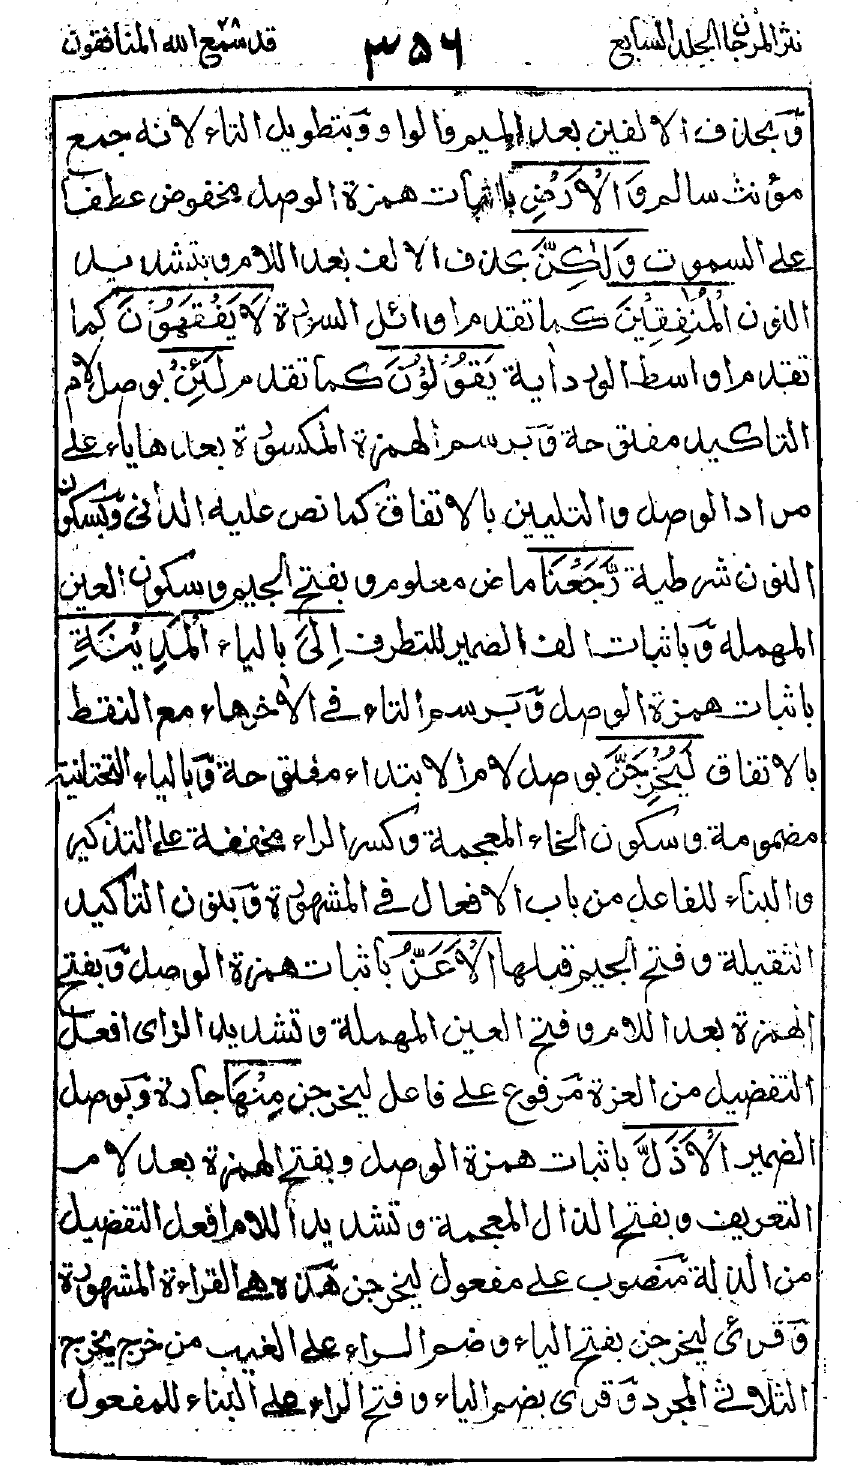 نثر المرجان الجلد السابع ٣٥٦ قد سمع الله ٢٨ المنافقون
وَبحذف الالفين بعد الميم والواو وَبتطويل التاء لانه جمع
مؤنث سالم وَالْاَرْضِ باثبات همزة الوصل مخفوض عطف
على السموت وَلٰكِنَّ بحذف الالف بعد اللام وبتشديد
النون الْمُنٰفِقِيْنَ كما تقدم اوائل السورة لَا يَفْقَهُوْنَ كما
تقدم اواسط الورداية يَقُوْلُوْنَ كما تقدم لَئِنْ بوصل لام
التاكيد مفتوحة وَبرسم الهمزة المكسورة بعدها ياء على
مراد الوصل والتليين بالاتفاق كما نص عليه الدانى وَبسكون
النون شرطية رَّجَعْنَا ماض معلوم وبفتح الجيم وسكون العين
المهملة وَباثبات الف الضمير للتطرف اِلَى بالياء الْمَدِيْنَةِ
باثبات همزة الوصل وَبرسم التاء فى الاخرهاء مع النقط
بالاتفاق لَيُخْرِجَنَّ بوصل لام الابتداء مفتوحة وَبالياء التحتانية
مضمومة وسكون الخاء المعجمة وكسر الراء مخففة على التذكير
والبناء للفاعل من باب الافعال فى المشهورة وَبنون التاكيد
الثقيلة وفتح الجيم قبلها الْاَعَزُّ باثبات همزة الوصل وَبفتح
الهمزة بعد اللام وفتح العين المهملة وتشديد الزاى افعل
التفضيل من العزة مَرفوع على فاعل ليخرجن مِنْهَا جارة وَبوصل
الضمير الْاَذَلَّ باثبات همزة الوصل وبفتح الهمزة بعد لام
التعريف وبفتح الذال المعجمة وتشديد اللام افعل التفضيل
من الذلة مَنصوب على مفعول ليخرجن هٰذه هى القراءة المشهورة
وَقرئ ليخرجن بفتح الياء وضم الراء على الغيب من خرج يخرج
الثلاثى المجرد وَقرى بضم الياء وفتح الراء على البناء للمفعول